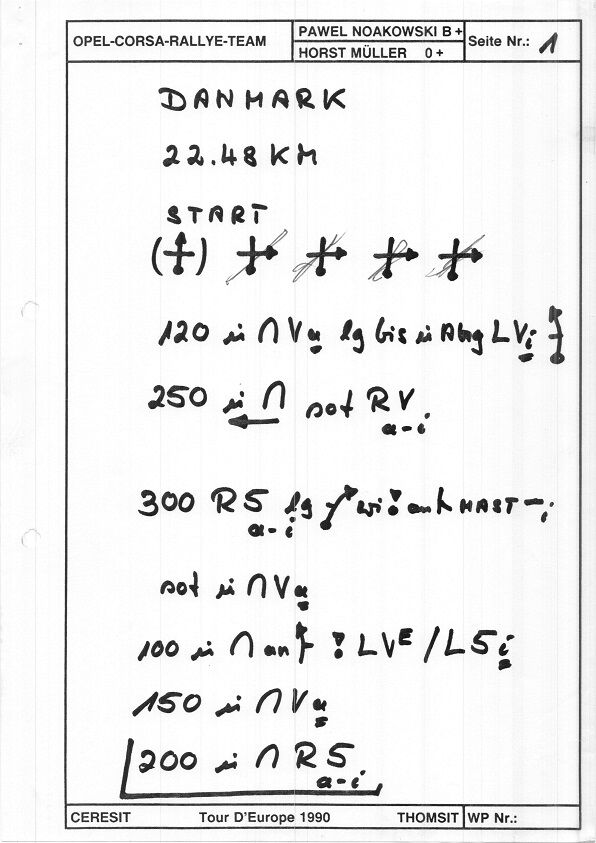 OPEL-CORSA-RALLYE-TEAM
PAWEL NOAKOWSKI B +
HORST MÜLLER 0 +
Seite Nr.: 1
DANMARK
22.48 KM
START
120 in ∩ Va lg bis in Abzg LVi
250 in ∩ sot RV a-i
300 R5 lg a-i ! MAST - i
sot in ∩ Va
100 in ∩ ! LVE / L5 i
150 in ∩ Va
200 in ∩ R5 a-i
CERESIT Tour D'Europe 1990 THOMSIT WP Nr.: